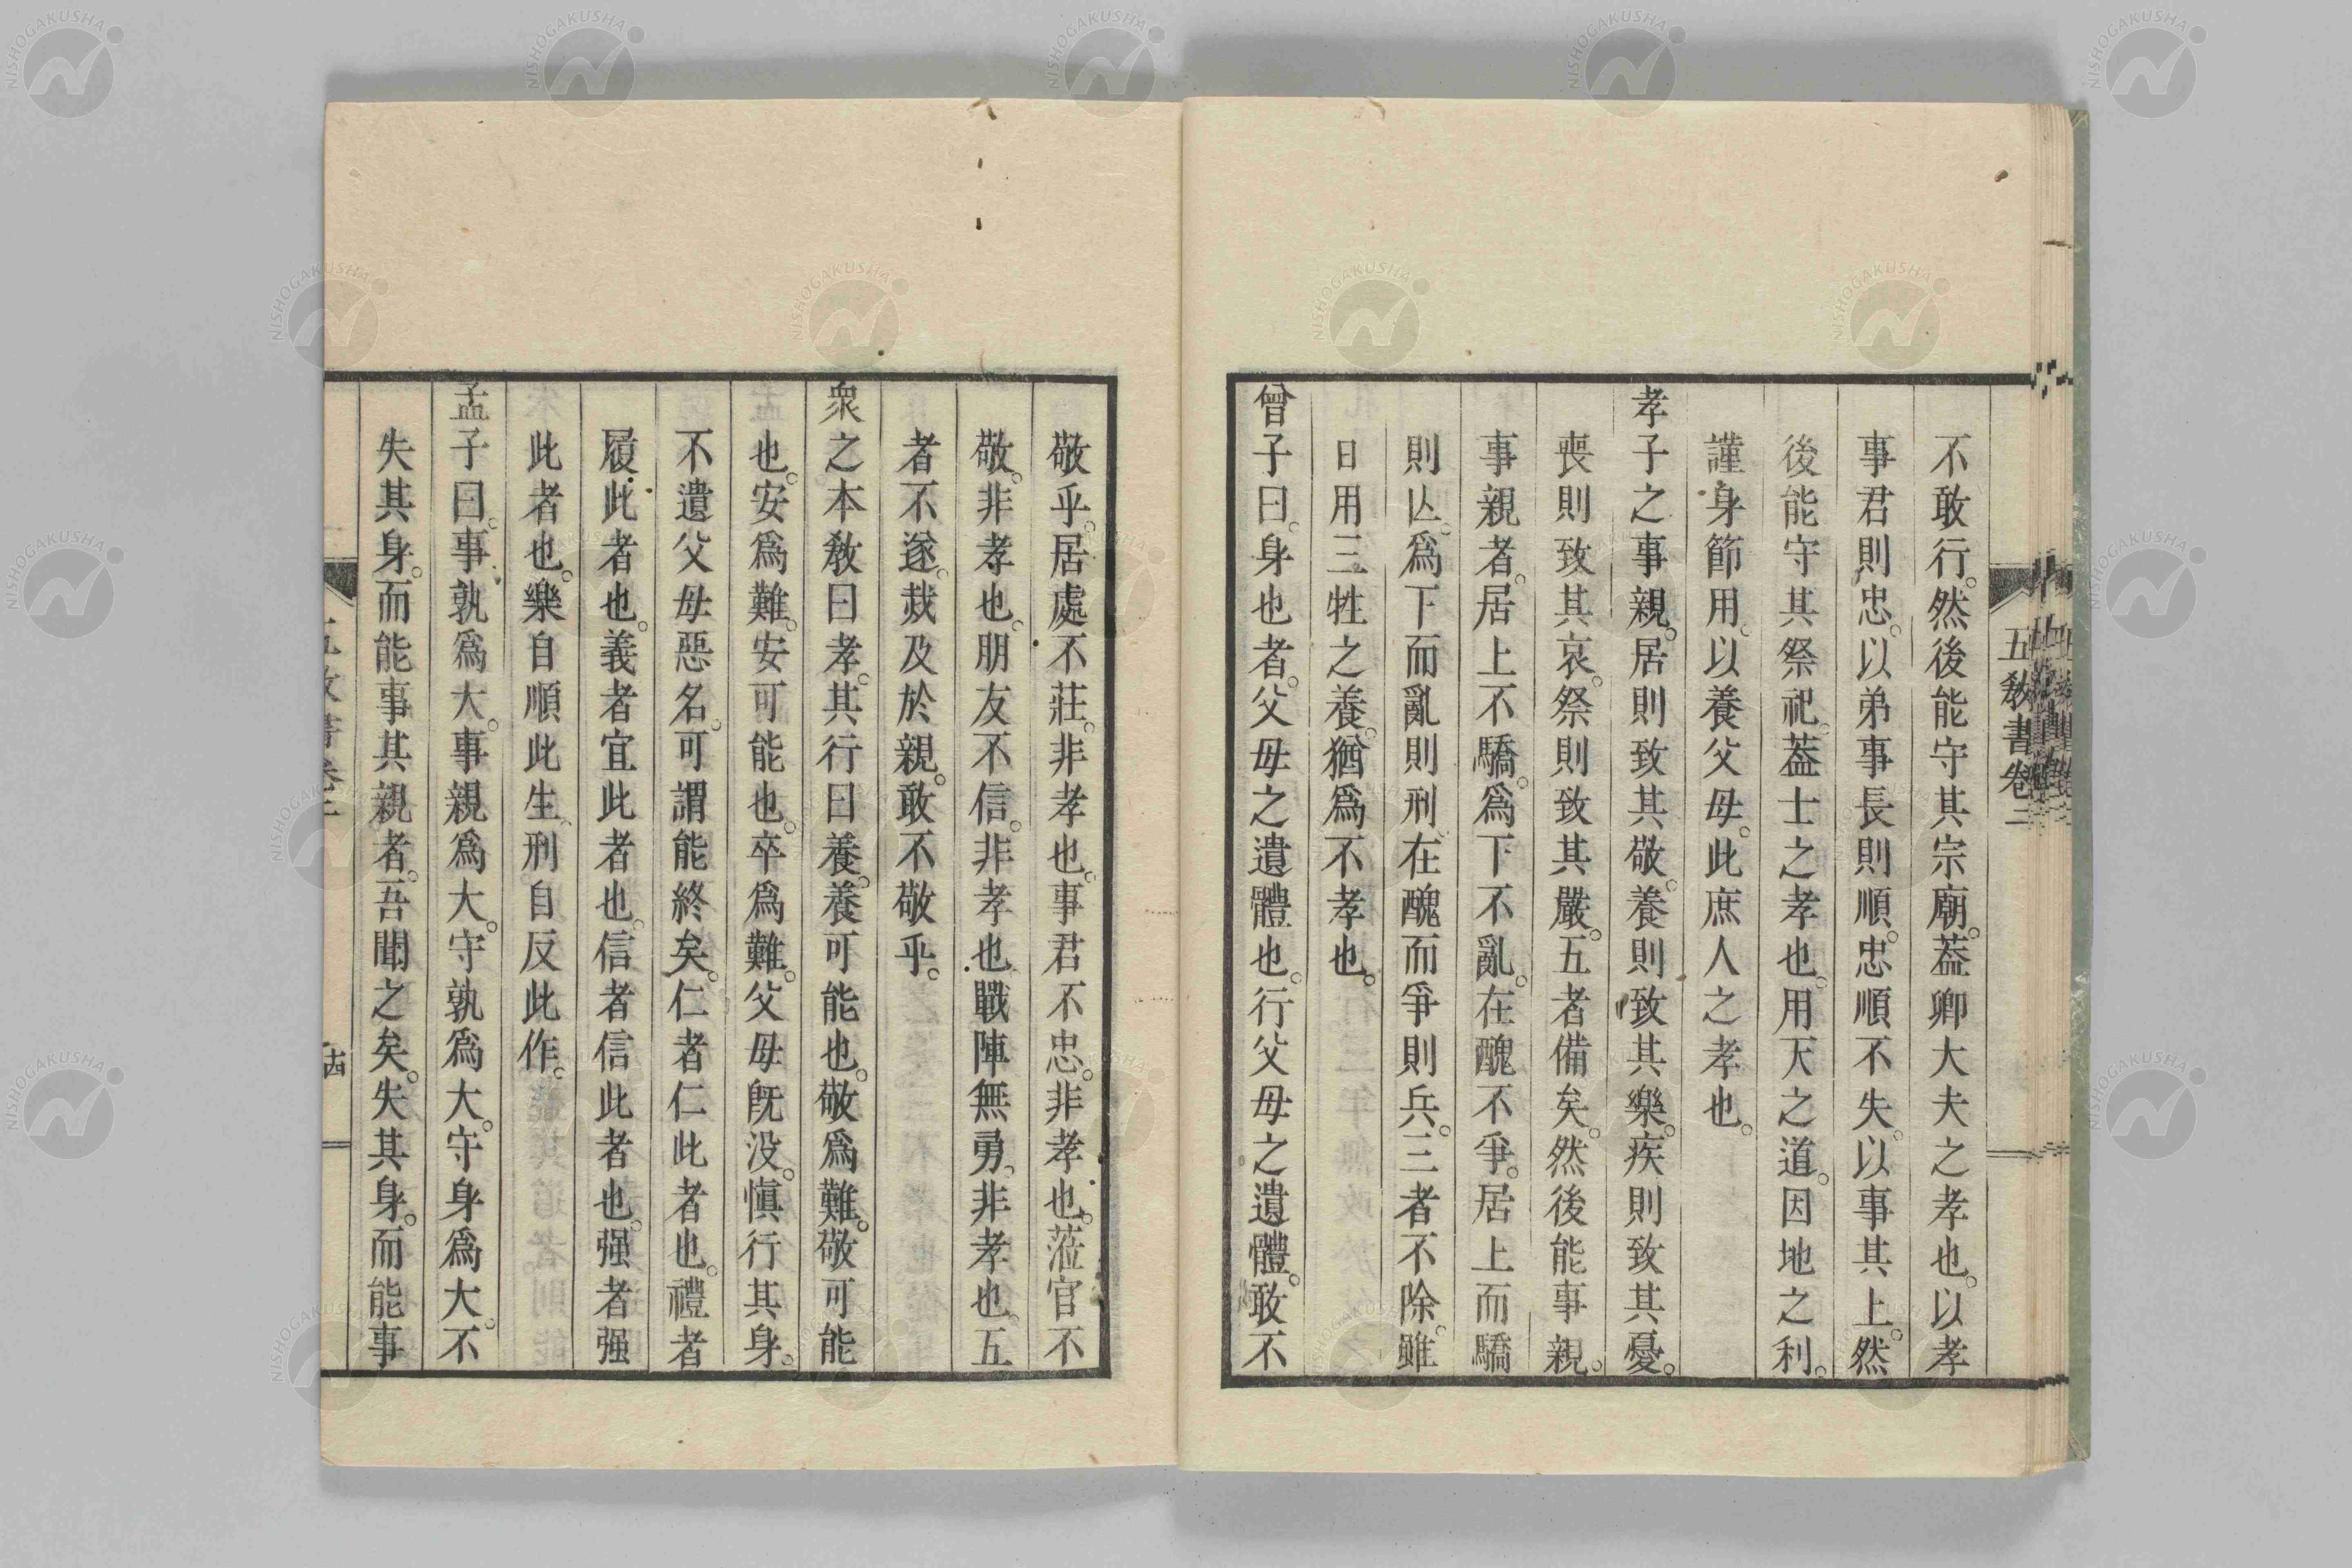 五敎書卷二
不敢行。然後能守其宗廟。葢卿大夫之孝也。以孝
事君則忠。以弟事長則順。忠順不失。以事其上。然
後能守其祭祀。葢士之孝也。用天之道。因地之利。
謹身節用。以養父母。此庶人之孝也。
孝子之事親。居則致其敬。養則致其樂。疾則致其憂。
喪則致其哀。祭則致其嚴。五者備矣。然後能事親。
事親者。居上不驕。爲下不亂。在醜不爭。居上而驕
則亾。爲下而亂則刑。在醜而爭則兵。三者不除。雖
日用三牲之養。猶爲不孝也。
曾子曰。身也者。父母之遺體也。行父母之遺體。敢不
敬乎。居處不莊。非孝也。事君不忠。非孝也。蒞官不
敬。非孝也。朋友不信。非孝也。戰陣無勇。非孝也。五
者不遂。烖及於親。敢不敬乎。
衆之本敎曰孝。其行曰養。養可能也。敬爲難。敬可能
也。安爲難。安可能也。卒爲難。父母旣没。愼行其身。
不遺父母惡名。可謂能終矣。仁者仁此者也。禮者
履此者也。義者宜此者也。信者信此者也。强者强
此者也。樂自順此生。刑自反此作。
孟子曰。事孰爲大。事親爲大。守孰爲大。守身爲大。不
失其身。而能事其親者。吾聞之矣。失其身。而能事
NISHOGAKUSHA